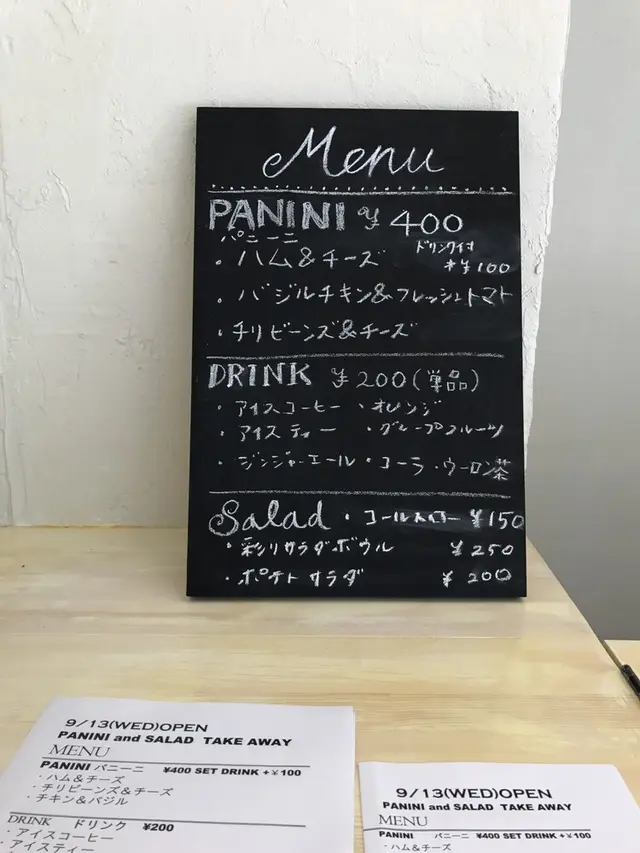 Menu
PANINI ¥400
パニーニ
ドリンク付
・ハム&チーズ
+¥100
・バジルチキン&フレッシュトマト
・チリビーンズ&チーズ
DRINK ¥200(単品)
・アイスコーヒー ・オレンジ
・アイスティー ・グレープフルーツ
・ジンジャーエール・コーラ・ウーロン茶
Salad ・コールスロー ¥150
・彩りサラダボウル ¥250
・ポテトサラダ ¥200
9/13(WED)OPEN
PANINI and SALAD TAKE AWAY
MENU
PANINI パニーニ ¥400 SET DRINK +¥100
・ハム&チーズ
・チリビーンズ&チーズ
・チキン&バジル
DRINK ドリンク ¥200
・アイスコーヒー
・アイスティー
9/13(WED)OPEN
PANINI and SALAD TAKE AWAY
MENU
PANINI パニーニ ¥400 SET DRINK +¥100
・ハム&チーズ